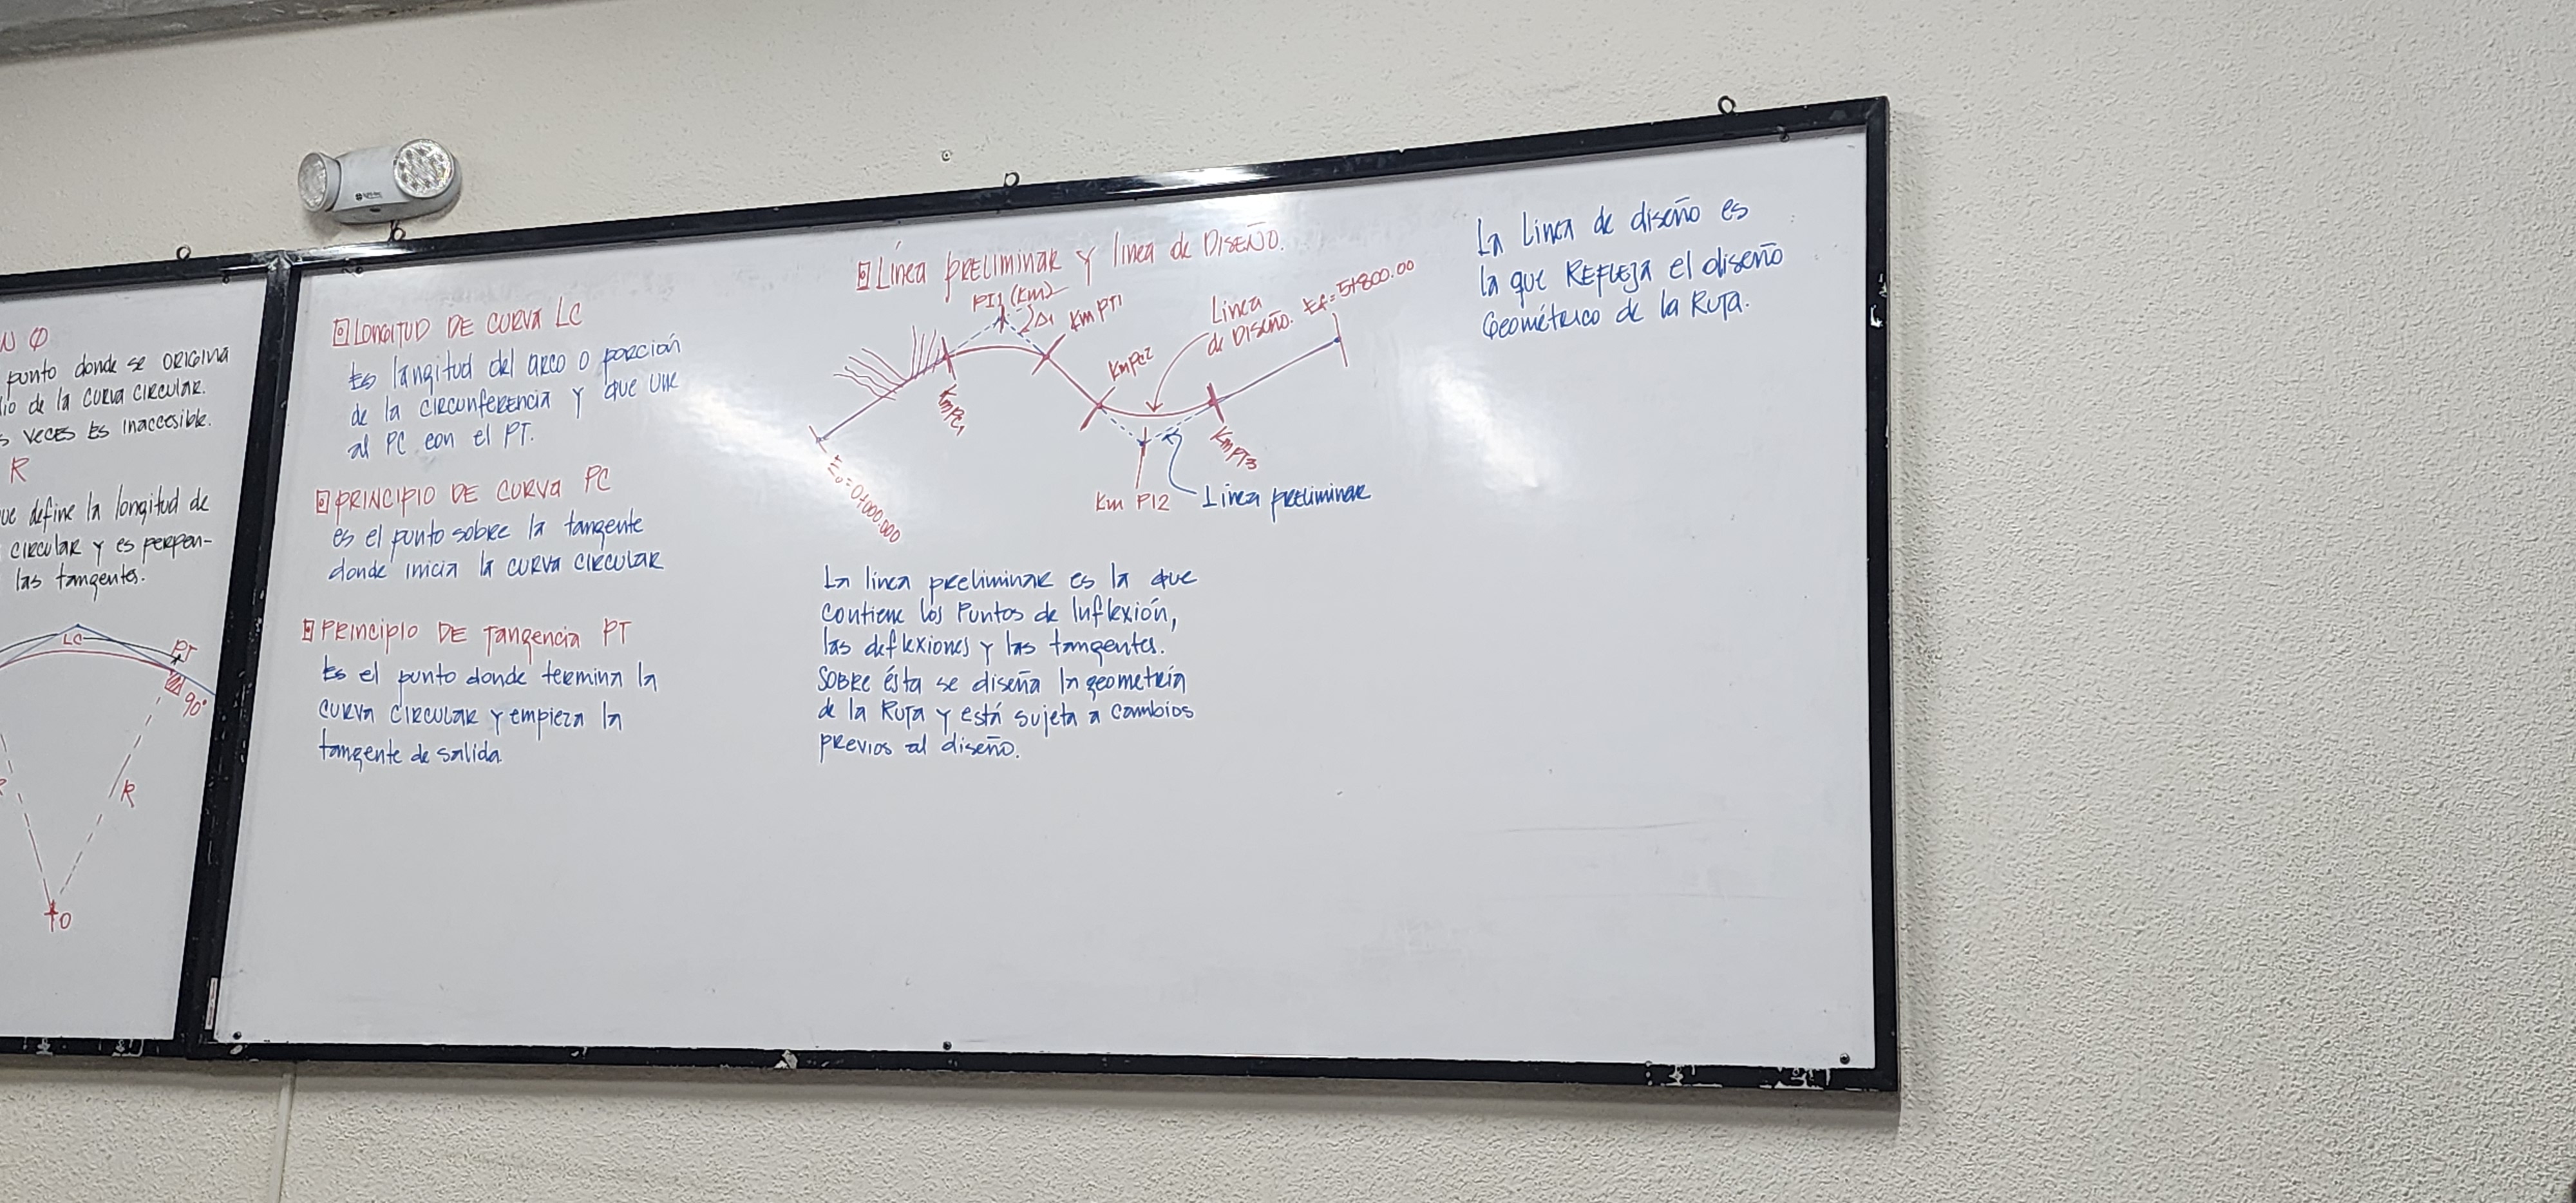 N Φ
punto donde se origina
io de la curva circular.
s veces es inaccesible.
R
ue define la longitud de
circular y es perpen-
las tangentes.
LC
PT
90°
R
O
LONGITUD DE CURVA LC
Es longitud del arco o porción
de la circunferencia y que une
al PC con el PT.
PRINCIPIO DE CURVA PC
es el punto sobre la tangente
donde inicia la curva circular
PRINCIPIO DE Tangencia PT
Es el punto donde termina la
curva circular y empieza la
tangente de salida
Línea PRELIMINAR y línea de DISEÑO.
PI1 (Km)
Δ1
Km PT1
Km PC1
Km PC2
Línea
de DISEÑO.
Ef = 5+800.00
Km PT3
Eo = 0+000.000
Km PI2
Línea preliminar
La línea preliminar es la que
contiene los Puntos de Inflexión,
las deflexiones y las tangentes.
Sobre ésta se diseña la geometría
de la Ruta y está sujeta a cambios
previos al diseño.
La línea de diseño es
la que REFLEJA el diseño
Geométrico de la Ruta.